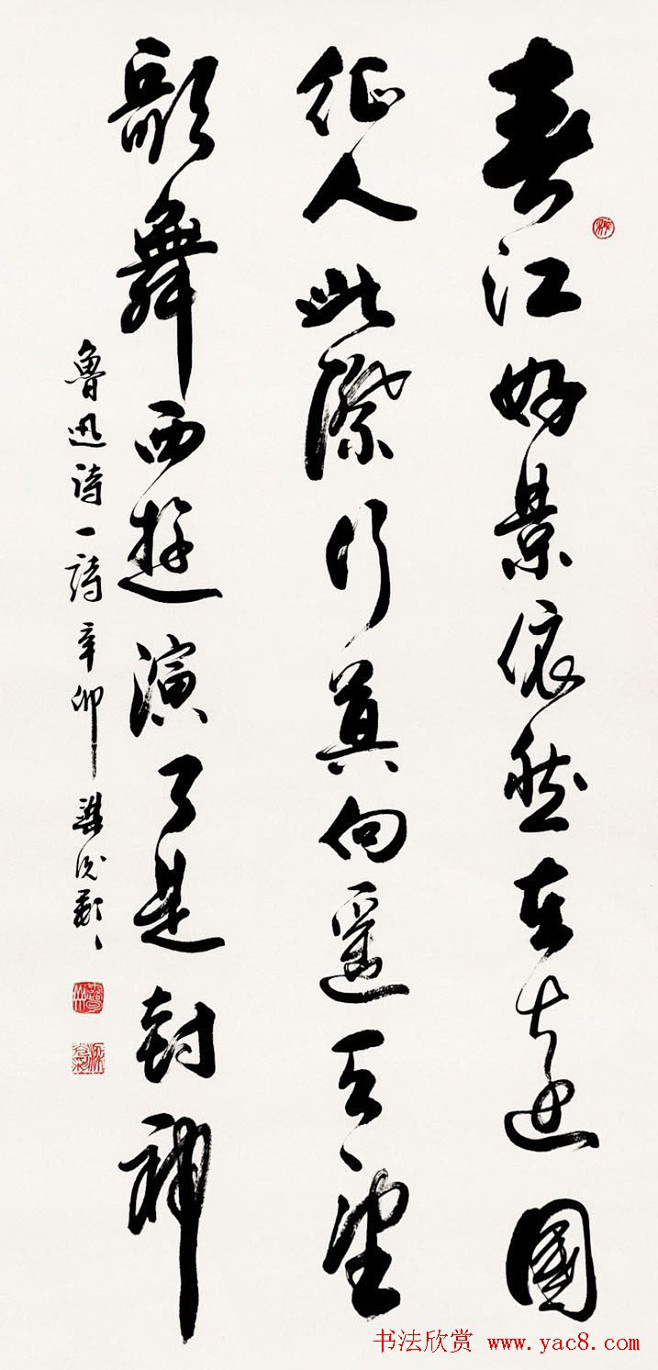 春江好景依然在遠國
征人此際行莫向遥天望
歌舞西遊演了是封神
魯迅诗一詩辛卯
书法欣赏 www.yac8.com